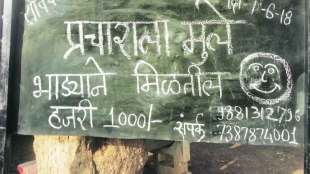 प्रचाराला मुले
भाड्याने मिळतील
हजरी 1000/- संपर्क 9881312796
7387874001